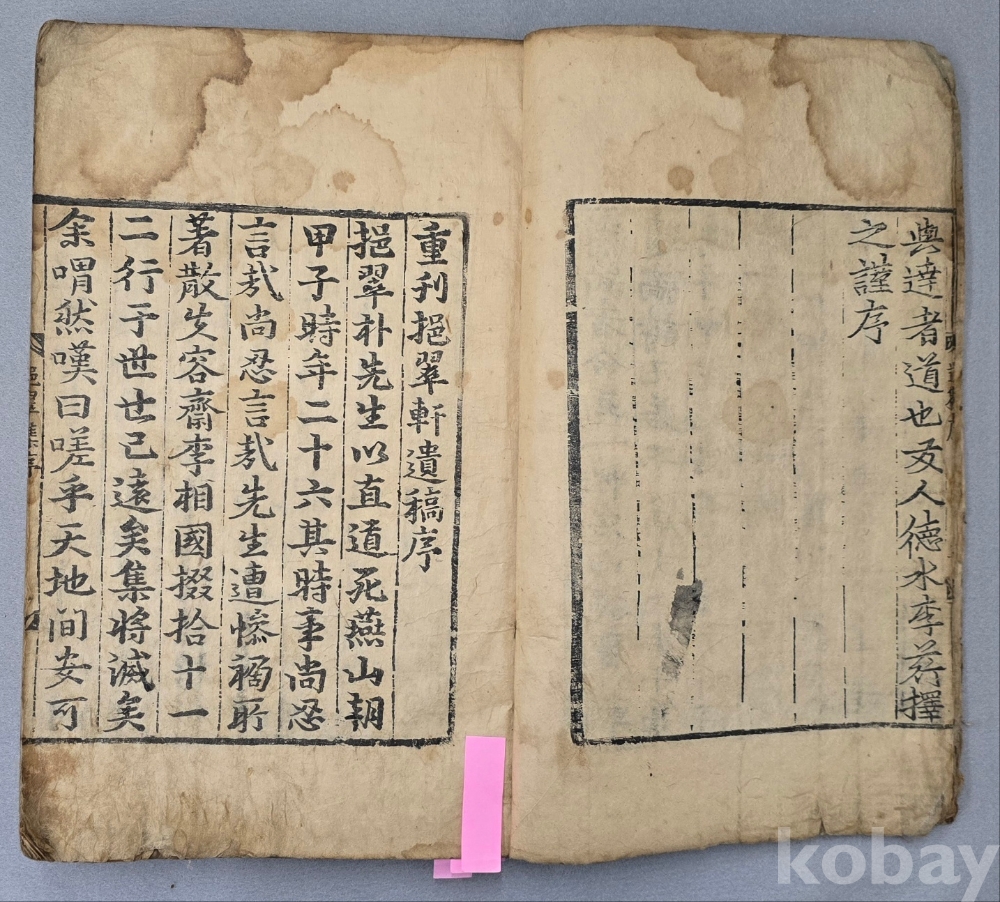 與達者道也友人德水李荇擇
之謹序
重刋挹翠軒遺稿序
挹翠朴先生以直道死燕山朝
甲子時年二十六其時事尚忍
言㢤尚忍言㢤先生遭慘禍所
著散失容齋李相國掇拾十一
二行于世世已遠矣集將滅矣
余喟然嘆曰嗟乎天地間安可
kobay